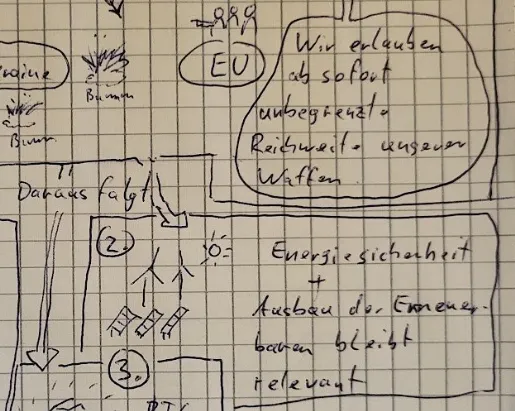 EU
Wir erlauben
ab sofort
unbegrenzte
Reichweite unserer
Waffen
raine
Bumm
Bumm
Daraus folgt
2.
Energiesicherheit
+
Ausbau der Erneuer-
baren bleibt
relevant
3.